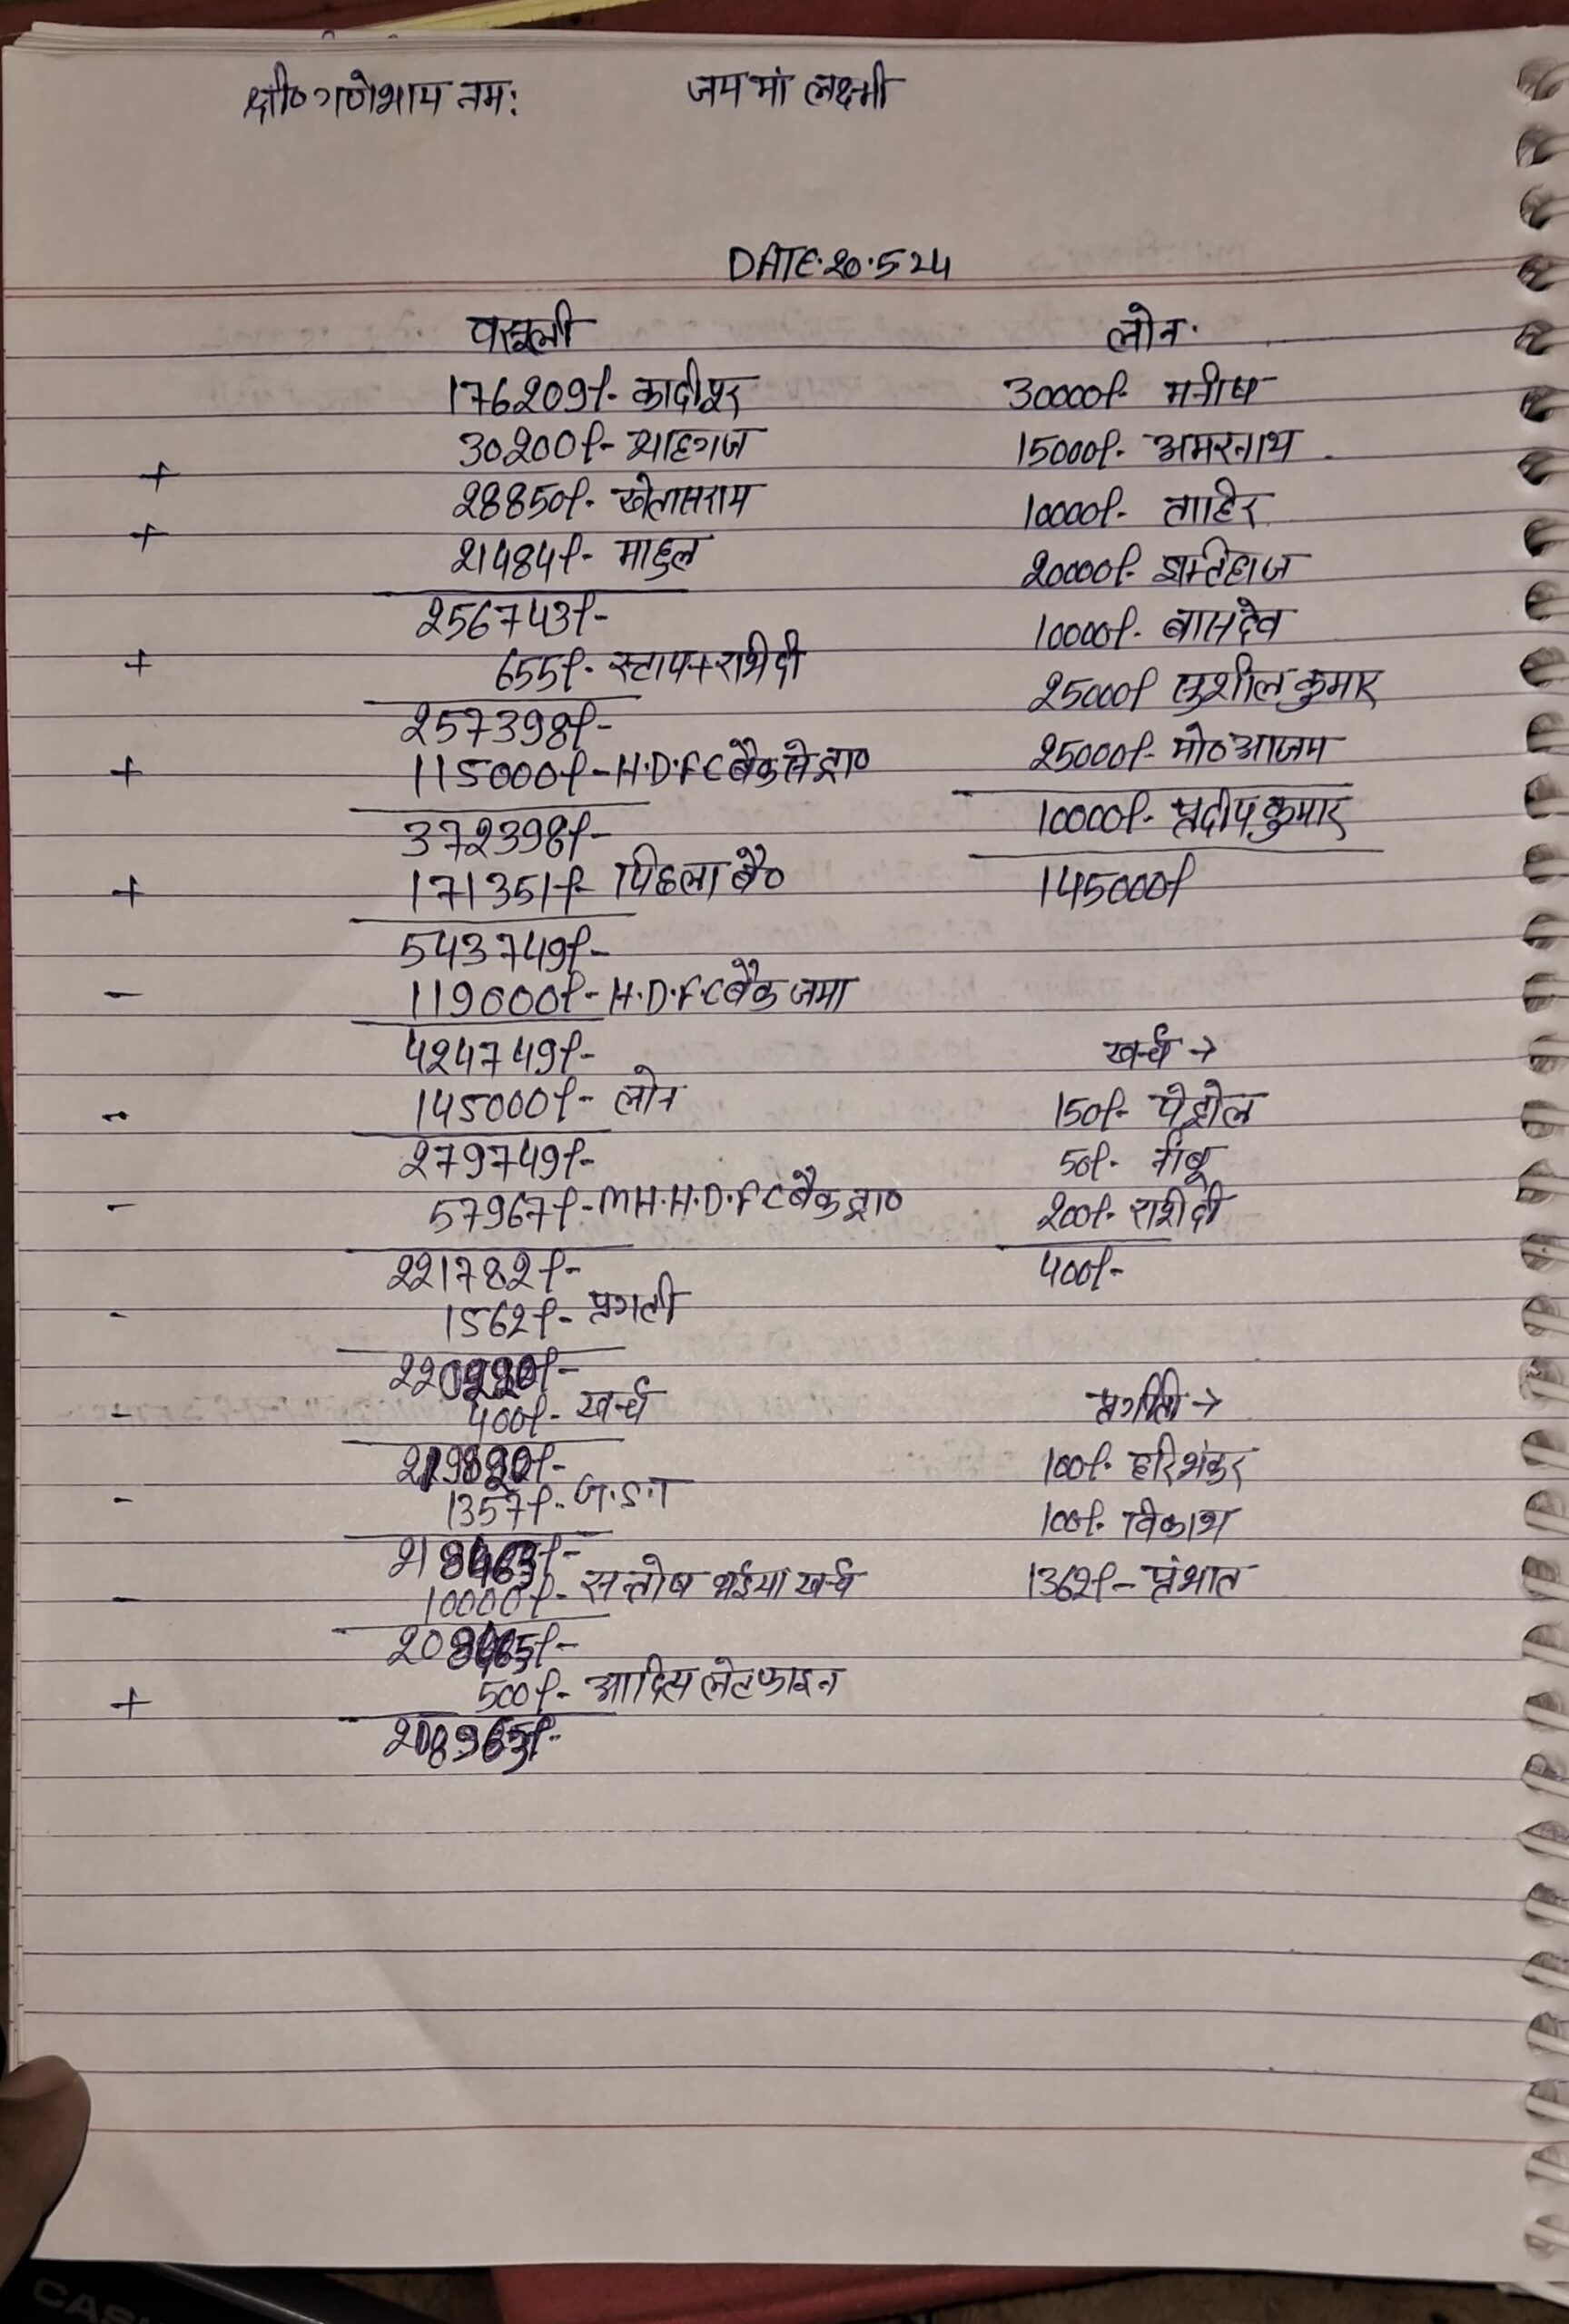 श्री० गणेशाय नमः जय मां लक्ष्मी
DATE.20.5.24
वसूली
176209/- कादीपुर
+ 30200/- शाहगंज
+ 28850/- खेतासराय
21484/- माहुल
256743/-
+ 655/- स्टाप+राशीदी
257398/-
+ 115000/- H.D.F.C बैंक से ट्रा०
372398/-
+ 171351/- पिछला बै०
543749/-
- 119000/- H.D.F.C बैंक जमा
424749/-
- 145000/- लोन
279749/-
- 57967/- MH.H.D.F.C बैंक ट्रा०
221782/-
- 1562/- प्रगती
220220/-
- 400/- खर्च
219820/-
- 1357/- G.S.T
218463/-
- 10000/- सन्तोष भईया खर्च
+ 500/- आदित्य लेट फाइन
लोन.
30000/- मनीष
15000/- अमरनाथ
10000/- ताहिर
20000/-
10000/- बासदेव
25000/ सुशील कुमार
25000/- मो० आजम
10000/- प्रदीप कुमार
145000/
खर्च →
150/- पेट्रोल
50/- नींबू
200/- राशीदी
400/-
प्रगती →
100/- हरिशंकर
100/- विकाश
1362/- प्रभात